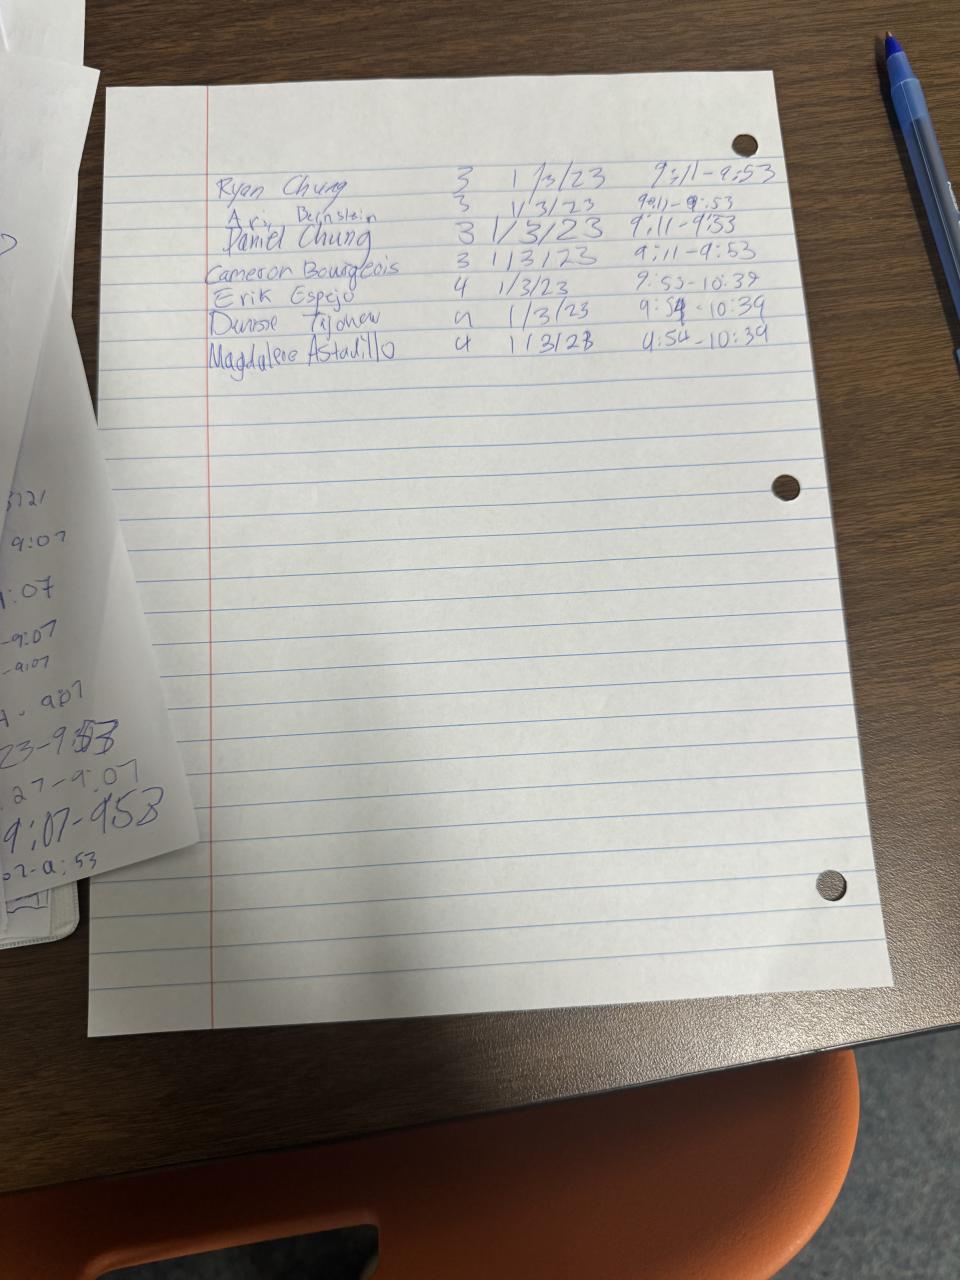 Ryan Chung 3 1/3/23 9:11-9:53
Ari Bernstein 3 1/3/23 9:11-9:53
Daniel Chung 3 1/3/23 9:11-9:53
Cameron Bourgeois 3 1/3/23 9:11-9:53
Erik Espejo 4 1/3/23 9:53-10:39
4 1/3/23 9:54-10:39
Magdalene Astadillo 4 1/3/23 9:54-10:39
9:07
:07
-9:07
-9:07
907
23-9:53
27-9:07
9:07-953
07-9:53